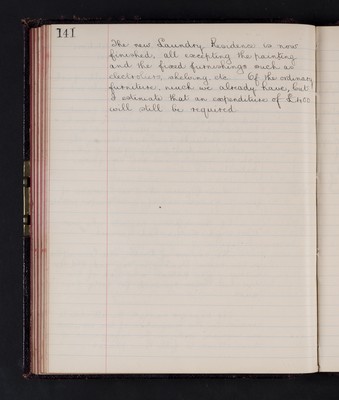 141
The new Laundry Residence is now
finished, all excepting the painting
and the fixed furnishings such as
shelving, etc. Of the ordinary
furniture, much we already have, but
I estimate that an expenditure of £400
will still be required